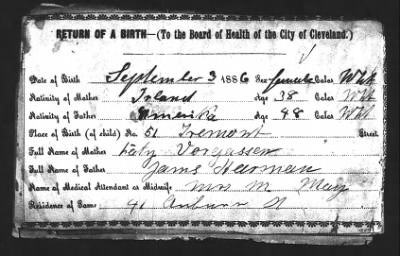 RETURN OF A BIRTH—(To the Board of Health of the City of Cleveland.)
Date of Birth September 3 1886 Sex female Color Wht
Nativity of Mother Irland Age 38 Color Wht
Nativity of Father Amerika Age 48 Color Wht
Place of Birth (of child) No. 51 Tremont Street
Full Name of Mother Vorgassen
Full Name of Father Jams Harman
Name of Medical Attendant or Midwife Mrs M May
Residence of Same 41 Auburn St